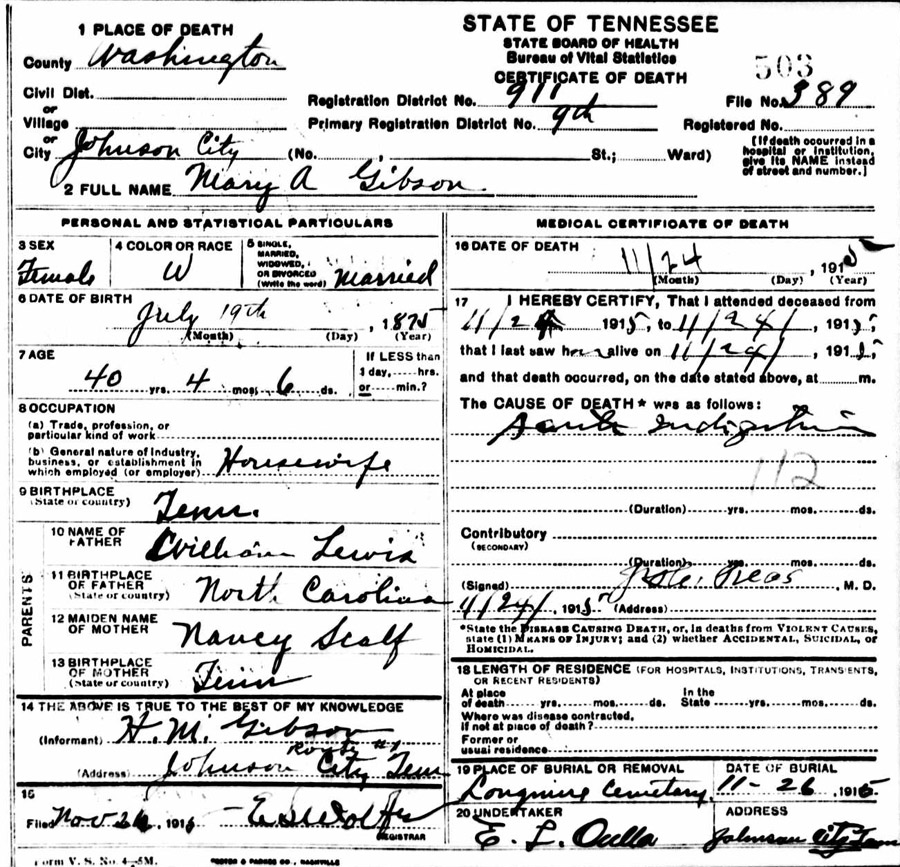 STATE OF TENNESSEE
STATE BOARD OF HEALTH
Bureau of Vital Statistics
CERTIFICATE OF DEATH
503
1 PLACE OF DEATH
County Washington
Civil Dist.
or
Village
or
City Johnson City (No. St.; Ward)
Registration District No. 911 File No. 389
Primary Registration District No. 9th Registered No.
[If death occurred in a
hospital or institution,
give its NAME instead
of street and number.]
2 FULL NAME Mary A Gibson
PERSONAL AND STATISTICAL PARTICULARS
3 SEX
Female
4 COLOR OR RACE
W
5 SINGLE,
MARRIED,
WIDOWED,
OR DIVORCED
(Write the word) Married
6 DATE OF BIRTH
July 19th, 1875
(Month) (Day) (Year)
7 AGE
40 yrs. 4 mos. 6 ds.
If LESS than
1 day, hrs.
or min.?
8 OCCUPATION
(a) Trade, profession, or
particular kind of work
(b) General nature of industry,
business, or establishment in
which employed (or employer) Housewife
9 BIRTHPLACE
(State or country) Tenn.
PARENTS
10 NAME OF
FATHER William Lewis
11 BIRTHPLACE
OF FATHER
(State or country) North Carolina
12 MAIDEN NAME
OF MOTHER Nancy Scalf
13 BIRTHPLACE
OF MOTHER
(State or country) Tenn
14 THE ABOVE IS TRUE TO THE BEST OF MY KNOWLEDGE
(Informant) H. M. Gibson
Route #1
(Address) Johnson City Tenn
15
Filed Nov 26, 1915
REGISTRAR
Form V. S. No. 4-5M.
MEDICAL CERTIFICATE OF DEATH
16 DATE OF DEATH
11/24, 1915
(Month) (Day) (Year)
17 I HEREBY CERTIFY, That I attended deceased from
11/24 1915, to 11/24/, 1915,
that I last saw her alive on 11/24/, 1915,
and that death occurred, on the date stated above, at m.
The CAUSE OF DEATH* was as follows:
Acute Indigestion
112
(Duration) yrs. mos. ds.
Contributory
(SECONDARY)
(Duration) yrs. mos. ds.
(Signed) , M. D.
11/24/, 1915 (Address)
*State the DISEASE CAUSING DEATH, or, in deaths from VIOLENT CAUSES,
state (1) MEANS OF INJURY; and (2) whether ACCIDENTAL, SUICIDAL, or
HOMICIDAL.
18 LENGTH OF RESIDENCE (FOR HOSPITALS, INSTITUTIONS, TRANSIENTS,
OR RECENT RESIDENTS)
At place In the
of death yrs. mos. ds. State yrs. mos. ds.
Where was disease contracted,
if not at place of death?
Former or
usual residence
19 PLACE OF BURIAL OR REMOVAL
Cemetery
DATE OF BURIAL
11-26, 1915
20 UNDERTAKER
E. L.
ADDRESS
Johnson City Tenn